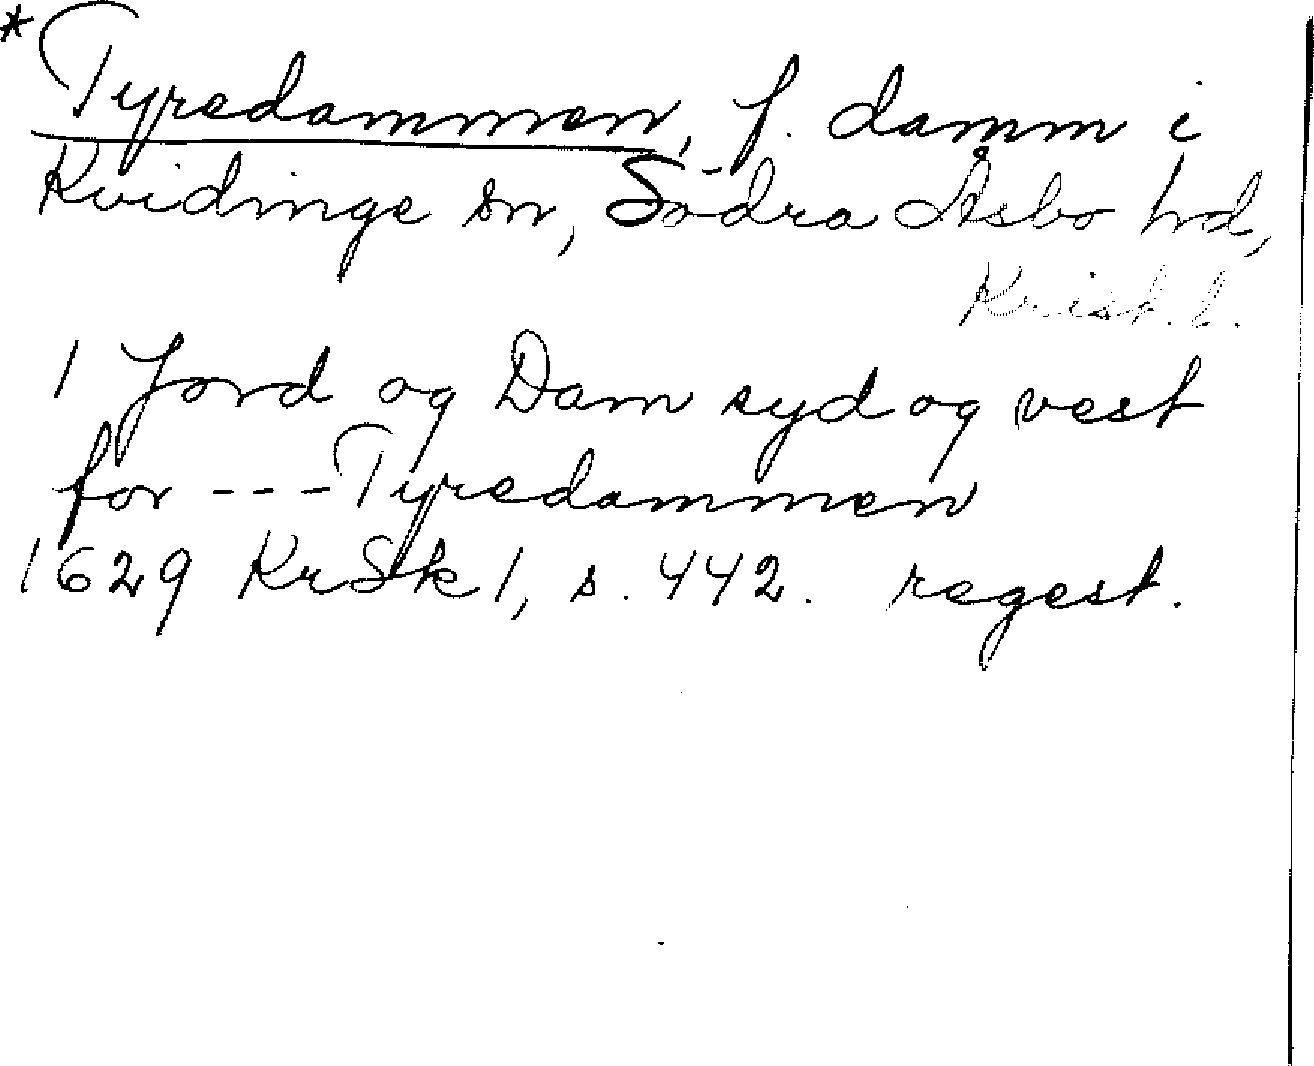 *Tyredammen, f. damm i
Kvidinge sn, Södra Åsbo hd,
Krist. l.
1 Jord og Dam syd og vest
for --- Tyredammen
1629 KrSk 1, s. 442. regest.